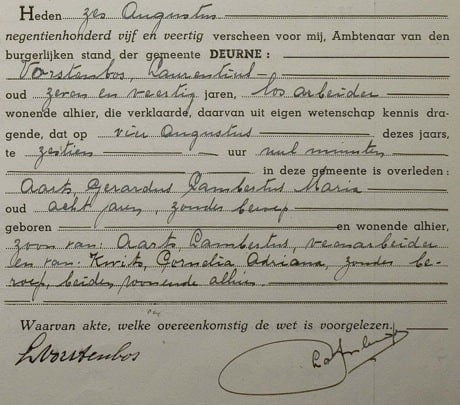 Heden zes Augustus
negentienhonderd vijf en veertig verscheen voor mij, Ambtenaar van den
burgerlijken stand, der gemeente DEURNE :
Vorstenbos, Laurentius
oud zeven en veertig jaren, los arbeider
wonende alhier, die verklaarde, daarvan uit eigen wetenschap kennis dra-
gende, dat op vier Augustus dezes jaars,
te zestien uur nul minuten
in deze gemeente is overleden:
Aarts, Gerardus Lambertus Maria
oud acht jaren, zonder beroep
geboren en wonende alhier,
zoon van: Aarts, Lambertus, veenarbeider
en van: Kwik, Cornelia Adriana, zonder be-
roep, beiden wonende alhier.
Waarvan akte, welke overeenkomstig de wet is voorgelezen.
LVorstenbos